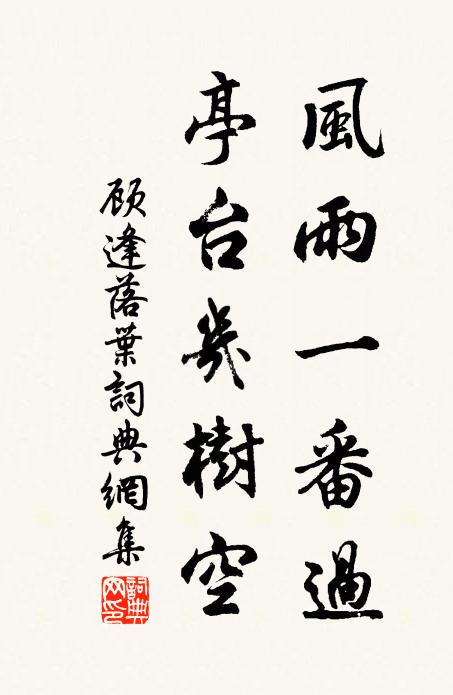 風雨一番過
亭台幾樹空
顾逢落葉詞典網集
詞典网印